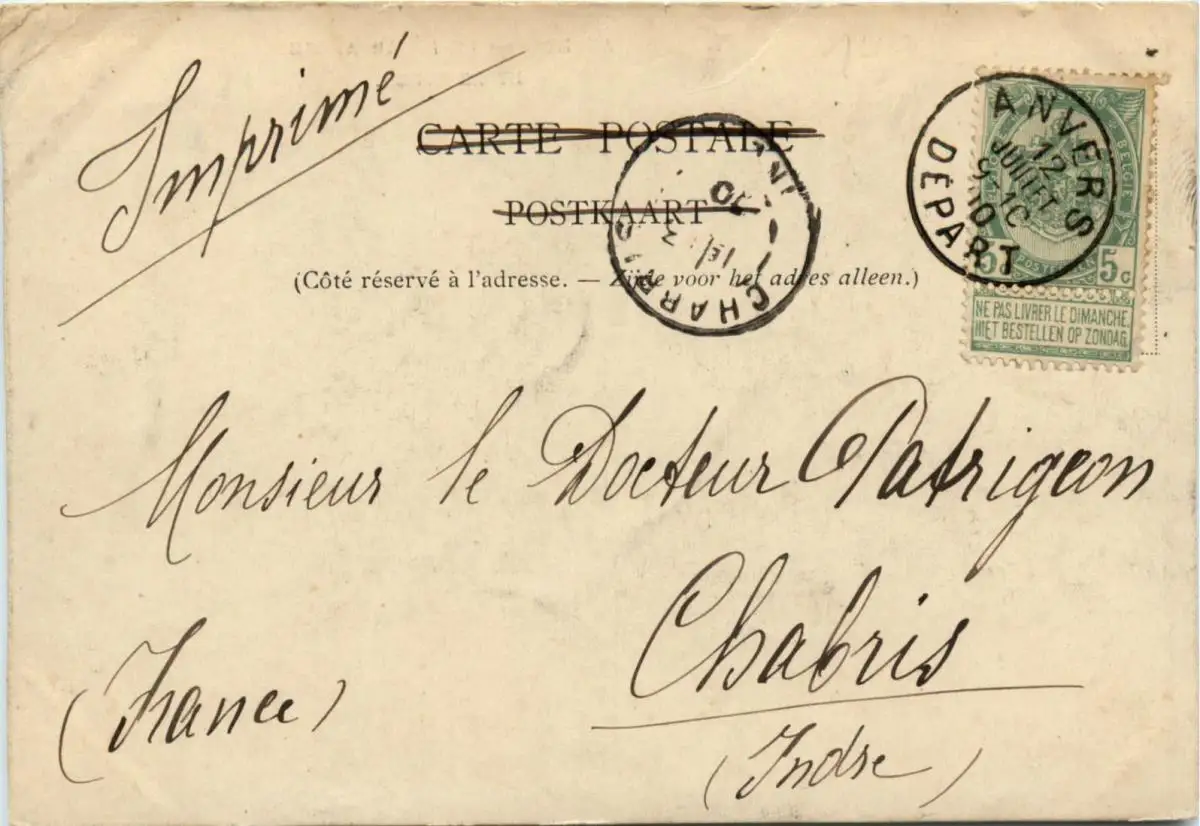 Imprimé
CARTE POSTALE
POSTKAART
(Côté réservé à l'adresse. — Zijde voor het adres alleen.)
ANVERS
12
JUILLET
9-10
DÉPART
CHABRIS
BELGIE
POSTERIJEN
5c
NE PAS LIVRER LE DIMANCHE.
NIET BESTELLEN OP ZONDAG.
Monsieur le Docteur Patrigeon
Chabris
(Indre)
(France)